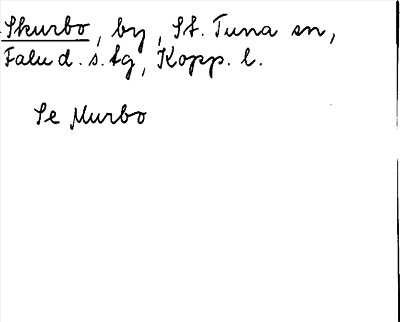 Skurbo, by, St. Tuna sn,
Falu d. s. tg, Kopp. l.
Se Murbo